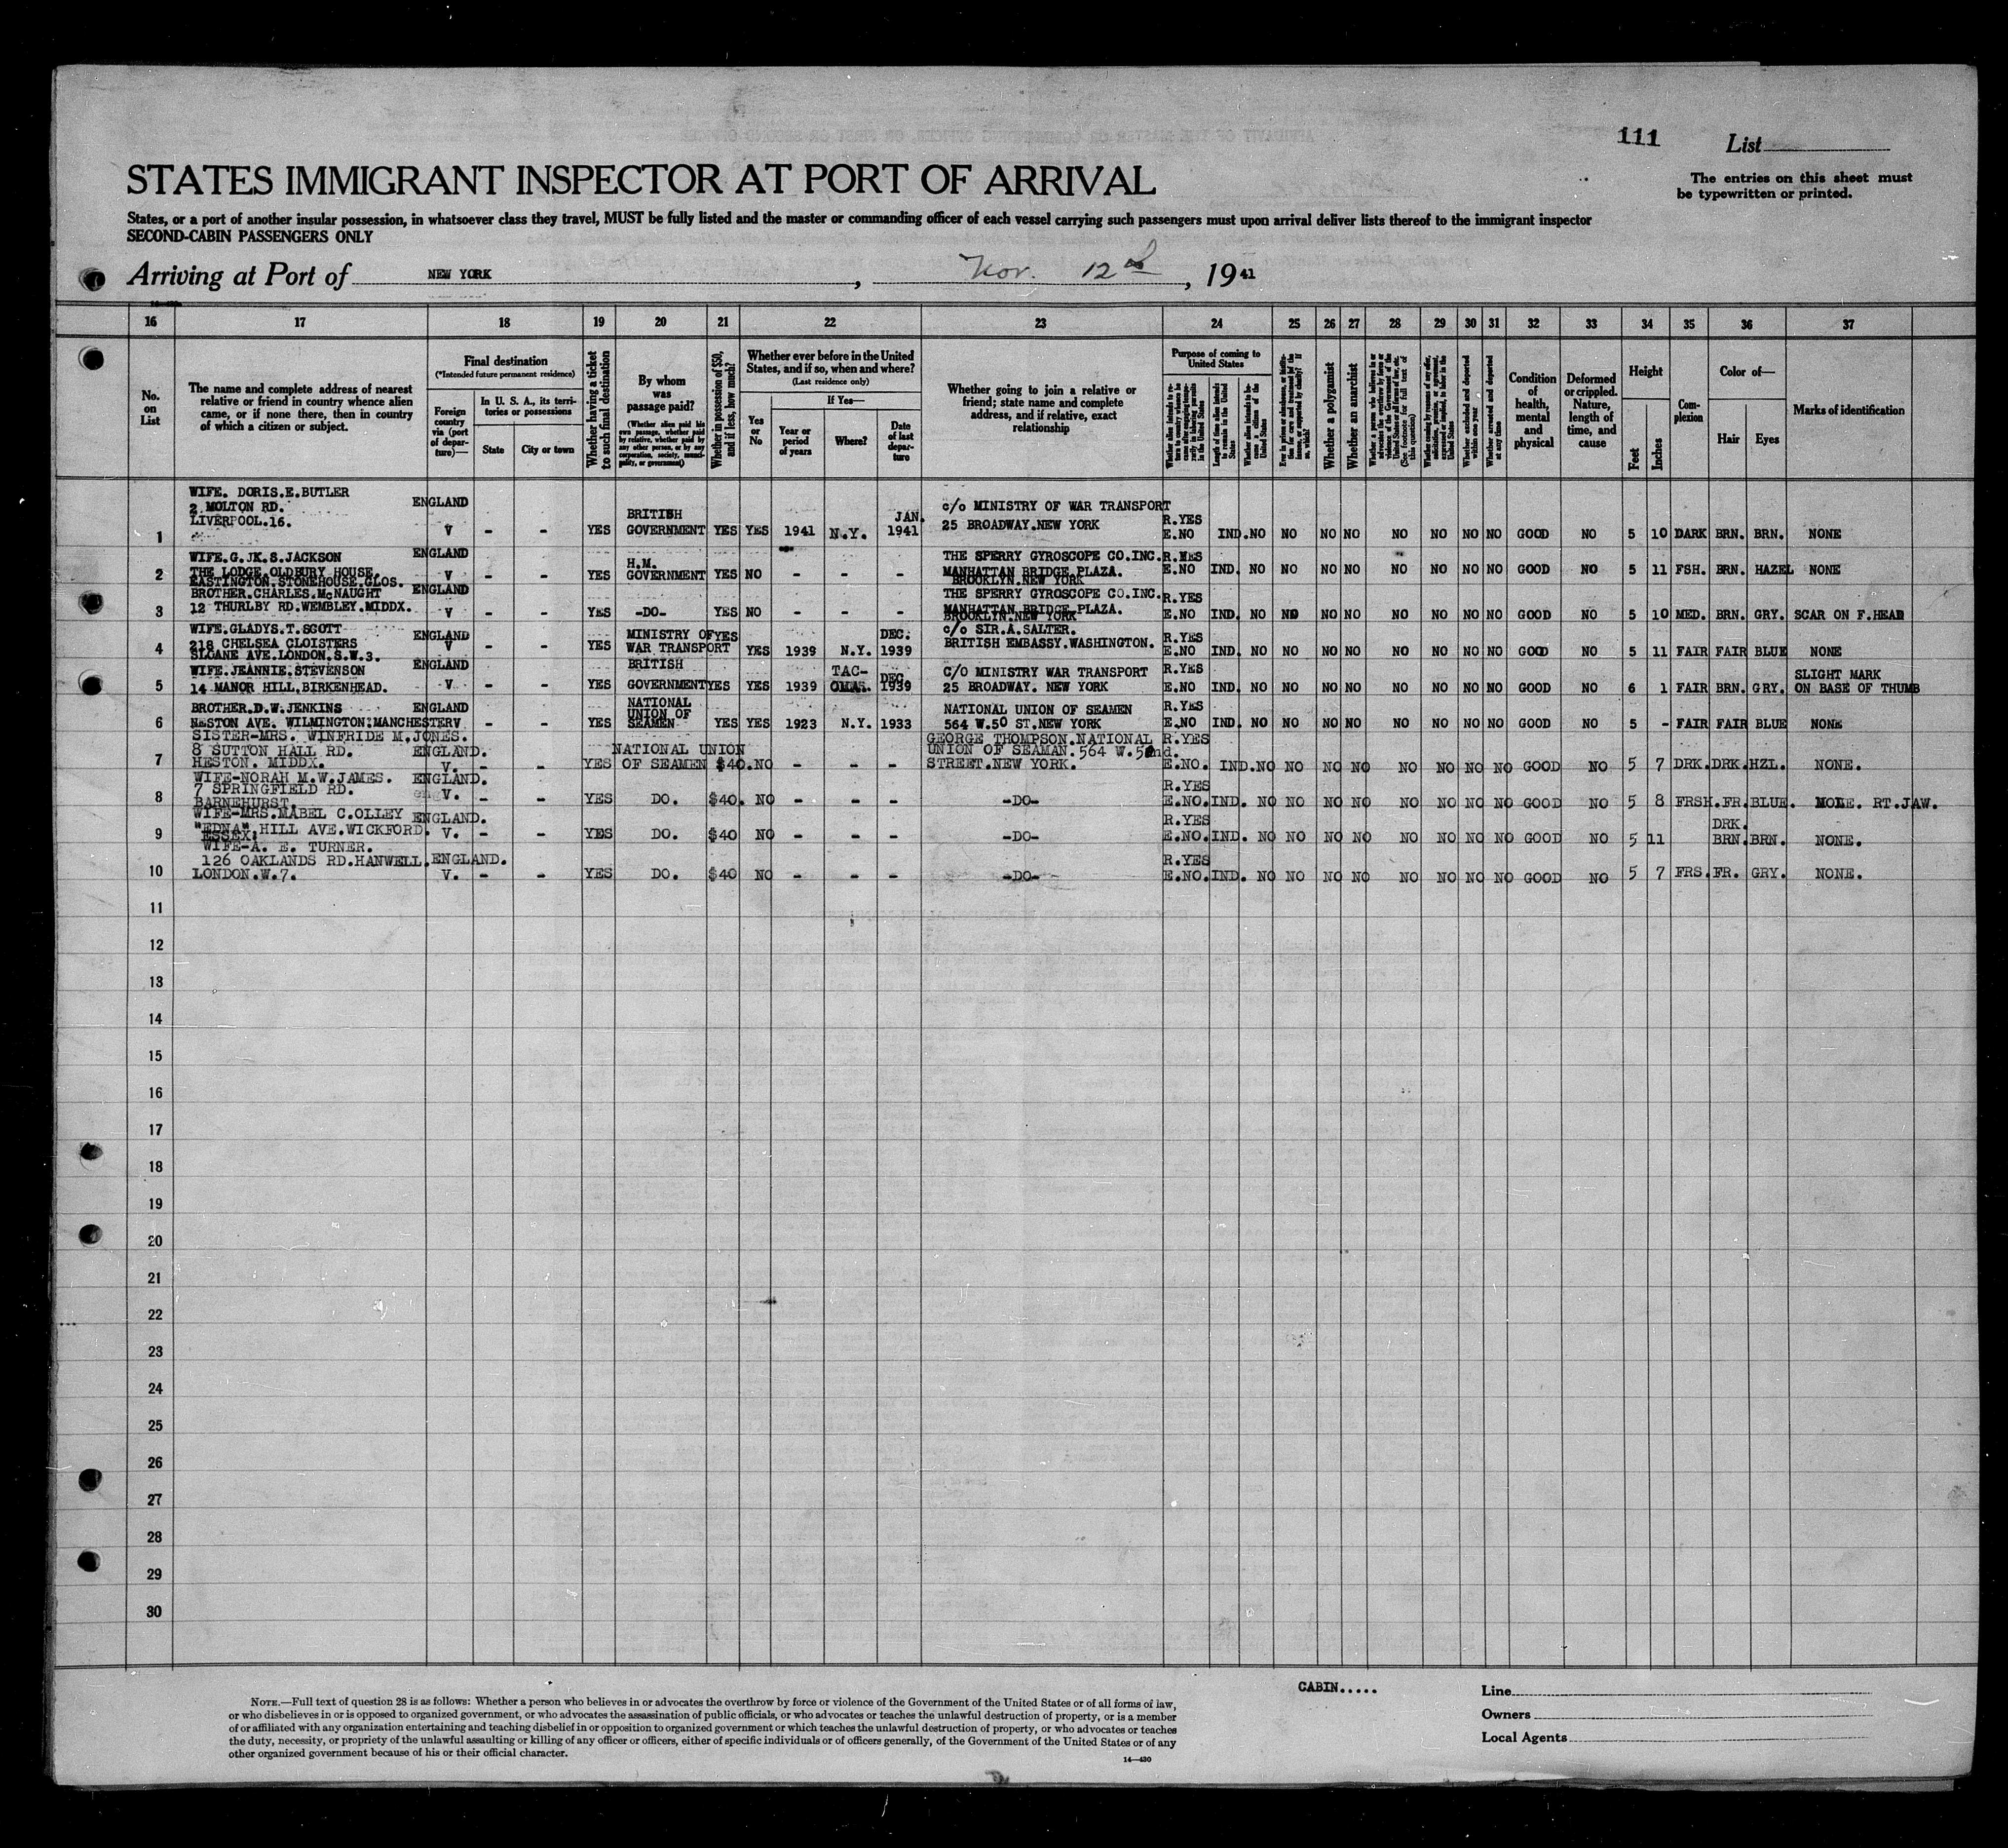 111
List
STATES IMMIGRANT INSPECTOR AT PORT OF ARRIVAL
The entries on this sheet must
be typewritten or printed.
States, or a port of another insular possession, in whatsoever class they travel, MUST be fully listed and the master or commanding officer of each vessel carrying such passengers must upon arrival deliver lists thereof to the immigrant inspector
SECOND-CABIN PASSENGERS ONLY
Arriving at Port of NEW YORK, Nov. 12, 1941
16 17 18 19 20 21 22 23 24 25 26 27 28 29 30 31 32 33 34 35 36 37
No. on List
The name and complete address of nearest
relative or friend in country whence alien
came, or if none there, then in country
of which a citizen or subject.
Final destination
(*Intended future permanent residence)
Foreign country via (port of departure)—
In U. S. A., its territories or possessions
State
City or town
Whether having a ticket to such final destination
By whom was passage paid?
(Whether alien paid his own passage, whether paid by relative, whether paid by any other person, or by any corporation, society, municipality, or government)
Whether in possession of $50, and if less, how much?
Whether ever before in the United
States, and if so, when and where?
(Last residence only)
Yes or No
If Yes—
Year or period of years
Where?
Date of last departure
Whether going to join a relative or
friend; state name and complete
address, and if relative, exact
relationship
Purpose of coming to
United States
Length of time alien intends to remain in the United States
Whether alien intends to become a citizen of the United States
Whether a polygamist
Whether an anarchist
Whether excluded and deported within one year
Whether arrested and deported at any time
Condition of health, mental and physical
Deformed or crippled. Nature, length of time, and cause
Height
Feet
Inches
Complexion
Color of—
Hair
Eyes
Marks of identification
WIFE. DORIS.E.BUTLER
2 MOLTON RD. ENGLAND BRITISH JAN. c/o MINISTRY OF WAR TRANSPORT
LIVERPOOL.16. 25 BROADWAY.NEW YORK R.YES
1 V - - YES GOVERNMENT YES YES 1941 N.Y. 1941 E.NO IND. NO NO NO NO NO NO NO NO GOOD NO 5 10 DARK BRN. BRN. NONE
WIFE.G.JK.S.JACKSON ENGLAND H.M. THE SPERRY GYROSCOPE CO.INC. R.YES
2 THE LODGE.OLDBURY HOUSE. V - - YES GOVERNMENT YES NO - - - MANHATTAN BRIDGE PLAZA. E.NO IND. NO NO NO NO NO NO NO NO GOOD NO 5 11 FSH. BRN. HAZEL NONE
EASTINGTON.STONEHOUSE.GLOS. BROOKLYN.NEW YORK
BROTHER.CHARLES.McNAUGHT ENGLAND THE SPERRY GYROSCOPE CO.INC. R.YES
3 12 THURLBY RD.WEMBLEY.MIDDX. V - - YES -DO- YES NO - - - MANHATTAN BRIDGE PLAZA. E.NO IND. NO NO NO NO NO NO NO NO GOOD NO 5 10 MED. BRN. GRY. SCAR ON F.HEAD
BROOKLYN.NEW YORK
WIFE.GLADYS.T.SCOTT ENGLAND MINISTRY OF YES DEC. c/o SIR.A.SALTER. R.YES
4 218 CHELSEA CLOISTERS V - - YES WAR TRANSPORT YES 1939 N.Y. 1939 BRITISH EMBASSY.WASHINGTON. E.NO IND. NO NO NO NO NO NO NO NO GOOD NO 5 11 FAIR FAIR BLUE NONE
SLOANE AVE.LONDON.S.W.3.
WIFE.JEANNIE.STEVENSON ENGLAND BRITISH TAC- DEC C/O MINISTRY WAR TRANSPORT R.YES SLIGHT MARK
5 14 MANOR HILL.BIRKENHEAD. V - - YES GOVERNMENT YES YES 1939 OMAR. 1939 25 BROADWAY. NEW YORK E.NO IND. NO NO NO NO NO NO NO NO GOOD NO 6 1 FAIR BRN. GRY. ON BASE OF THUMB
BROTHER.D.W.JENKINS ENGLAND NATIONAL UNION OF NATIONAL UNION OF SEAMEN R.YES
6 NESTON AVE. WILMINGTON.MANCHESTER V - - YES SEAMEN YES YES 1923 N.Y. 1933 564 W.50 ST.NEW YORK E.NO IND. NO NO NO NO NO NO NO NO GOOD NO 5 - FAIR FAIR BLUE NONE
SISTER-MRS. WINFRIDE M.JONES. GEORGE THOMPSON.NATIONAL R.YES
8 SUTTON HALL RD. ENGLAND. NATIONAL UNION UNION OF SEAMAN.564 W.52nd.
7 HESTON. MIDDX. V. - - YES OF SEAMEN $40. NO - - - STREET.NEW YORK. E.NO. IND. NO NO NO NO NO NO NO NO GOOD NO 5 7 DRK. DRK. HZL. NONE.
WIFE-NORAH M.W.JAMES. ENGLAND. R.YES
8 7 SPRINGFIELD RD. V. - - YES DO. $40. NO - - - -DO- E.NO. IND. NO NO NO NO NO NO NO NO GOOD NO 5 8 FRSH. FR. BLUE. MOLE. RT.JAW.
BARNEHURST.
WIFE-MRS.MABEL C.OLLEY ENGLAND. R.YES DRK.
9 "EDNA" HILL AVE.WICKFORD. V. - - YES DO. $40 NO - - - -DO- E.NO. IND. NO NO NO NO NO NO NO NO GOOD NO 5 11 BRN. BRN. NONE.
ESSEX.
WIFE-A. E. TURNER.
126 OAKLANDS RD.HANWELL. ENGLAND. R.YES
10 LONDON.W.7. V. - - YES DO. $40 NO - - - -DO- E.NO. IND. NO NO NO NO NO NO NO NO GOOD NO 5 7 FRS. FR. GRY. NONE.
11
12
13
14
15
16
17
18
19
20
21
22
23
24
25
26
27
28
29
30
NOTE.—Full text of question 28 is as follows: Whether a person who believes in or advocates the overthrow by force or violence of the Government of the United States or of all forms of law,
or who disbelieves in or is opposed to organized government, or who advocates the assassination of public officials, or who advocates or teaches the unlawful destruction of property, or is a member
of or affiliated with any organization entertaining and teaching disbelief in or opposition to organized government or which teaches the unlawful destruction of property, or who advocates or teaches
the duty, necessity, or propriety of the unlawful assaulting or killing of any officer or officers, either of specific individuals or of officers generally, of the Government of the United States or of any
other organized government because of his or their official character.
14—430
CABIN.....
Line
Owners
Local Agents